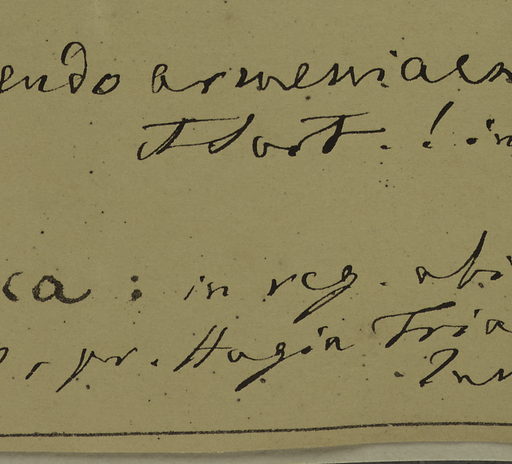 endo armeniaca
Hort. ! in
ca : in reg. abi
, pr. Hagia Tria
Jun